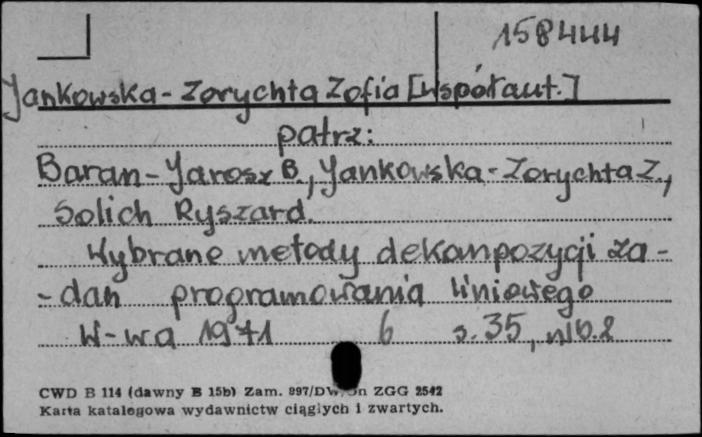 158444
Jankowska-Zorychta Zofia [współaut.]
patrz:
Baran-Jarosz B., Jankowska-Zorychta Z.,
Solich Ryszard.
Wybrane metody dekompozycji za-
-dań programowania liniowego
W-wa 1971 6 s. 35, nlb. 2
CWD B 114 (dawny B 15b) Zam. 997/DW ZGG 2542
Karta katalogowa wydawnictw ciągłych i zwartych.